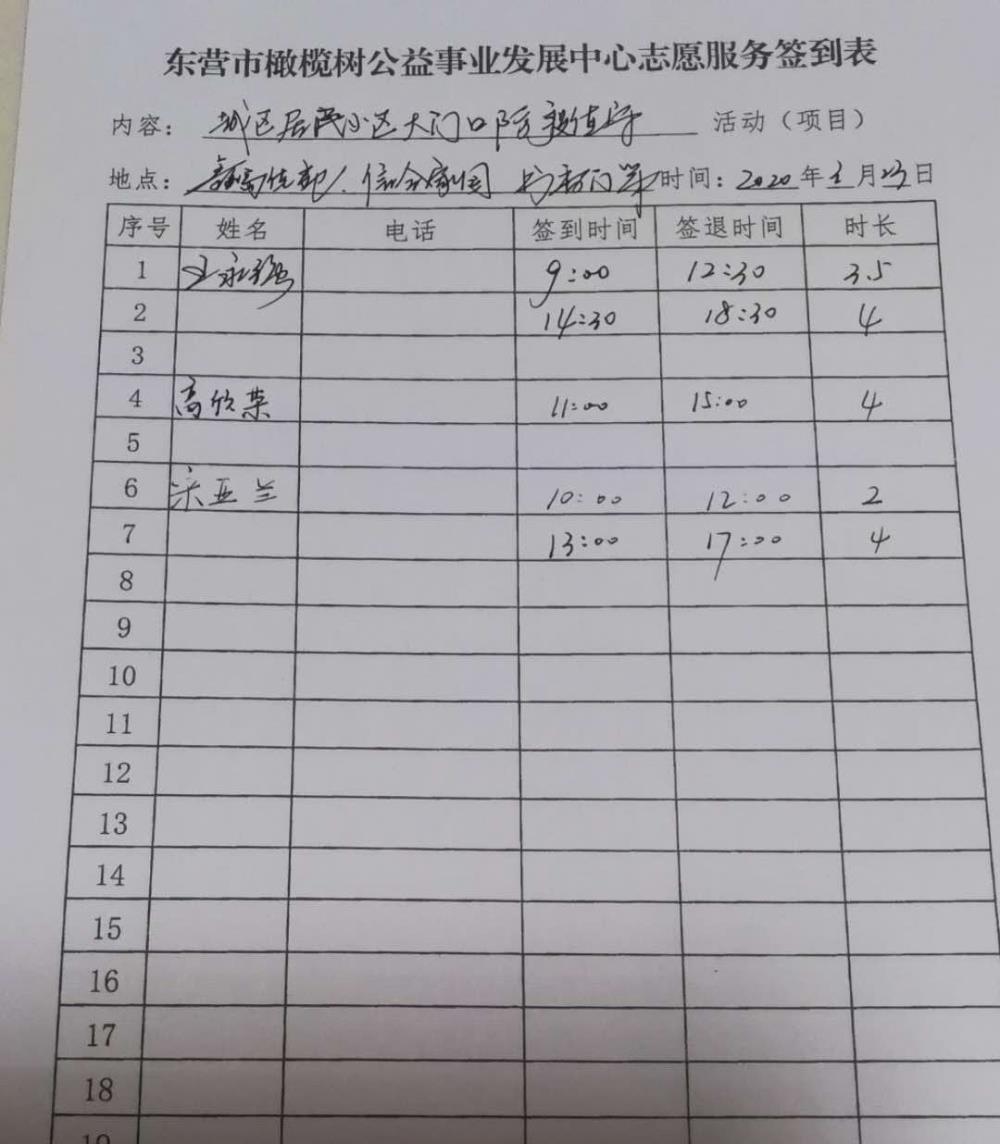 东营市橄榄树公益事业发展中心志愿服务签到表
内容： 城区居民小区大门口防疫值守 活动（项目）
地点： 信合家园 时间：2020年2月 日
序号 姓名 电话 签到时间 签退时间 时长
1 王永强 9:00 12:30 3.5
2 14:30 18:30 4
3
4 高欣荣 11:00 15:00 4
5
6 宋亚兰 10:00 12:00 2
7 13:00 17:00 4
8
9
10
11
12
13
14
15
16
17
18
19